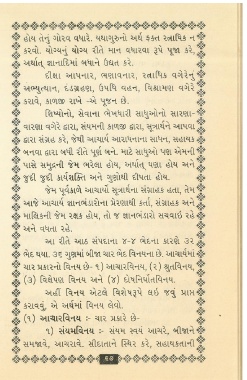 હોય તેનું ગૌરવ વધારે. યથાગુરુનો અર્થ ફક્ત રત્નાધિક ન
કરવો. યોગ્યનું યોગ્ય રીતે માન વધારવા રૂપે પૂજા કરે,
અર્થાત્ જ્ઞાનાદિમાં બધાને ઉદ્યત કરે.
દીક્ષા આપનાર, ભણાવનાર, રત્નાધિક વગેરેનું
અભ્યુત્થાન, દંડગ્રહણ, ઉપધિ વહન, વિશ્રામણા વગેરે
કરાવે, કાળજી રાખે -એ પૂજન છે.
શિષ્યોનો, સેવાના ભેખધારી સાધુઓનો સારણા-
વારણા વગેરે દ્વારા, સંયમની કાળજી દ્વારા, સૂત્રાર્થને આપવા
દ્વારા સંગ્રહ કરે, જેથી આચાર્ય આરાધનાના સાધન, સહાયક
બનવા દ્વારા બધી રીતે પૂર્ણ બને. માટે સાધુઓ પણ એમની
પાસે સમુદ્રની જેમ ભરેલા હોય, અર્થાત્ ઘણા હોય અને
જુદી જુદી કાર્યશક્તિ અને ગુણોથી દીપતા હોય.
જેમ પૂર્વકાળે આચાર્યો સૂત્રાર્થના સંગ્રાહક હતા, તેમ
આજે આચાર્ય જ્ઞાનભંડારોના પ્રેરણાથી કર્તા, સંગ્રાહક અને
માલિકની જેમ રક્ષક હોય, તો જ જ્ઞાનભંડારો સચવાઈ રહે
અને વધતા રહે.
આ રીતે આઠ સંપદાના ૪-૪ ભેદના કારણે ૩૨
ભેદ થયા. ૩૬ ગુણમાં બીજા ચાર ભેદ વિનયના છે. આચાર્યમાં
ચાર પ્રકારનો વિનય છે- ૧) આચારવિનય, (૨) શ્રુતવિનય,
(૩) વિક્ષેપણ વિનય અને (૪) દોષનિર્ઘાતવિનય.
અહીં વિનય એટલે વિશેષરૂપે લઇ જવું પ્રાપ્ત
કરાવવું, એ અર્થમાં વિનય લેવો.
(૧) આચારવિનય :- ચાર પ્રકારે છે-
૧) સંયમવિનય :- સંયમ સ્વયં આચરે, બીજાને
સમજાવે, આચરાવે. સીદાતાને સ્થિર કરે, સહાયકતાની